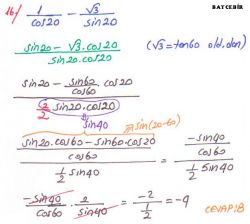 BAYCEBİR
16/ 1/cos20 - √3/sin20
sin20 - √3.cos20 / sin20.cos20 (√3=tan60 old.dan)
sin20 - sin60/cos60 . cos20 / 2/2 sin20.cos20
sin40
sin(20-60)
sin20.cos60 - sin60.cos20 / cos60 / 1/2 sin40 = -sin40 / cos60 / 1/2 sin40
-sin40/cos60 . 2/sin40 = -2 / 1/2 = -4 CEVAP:B